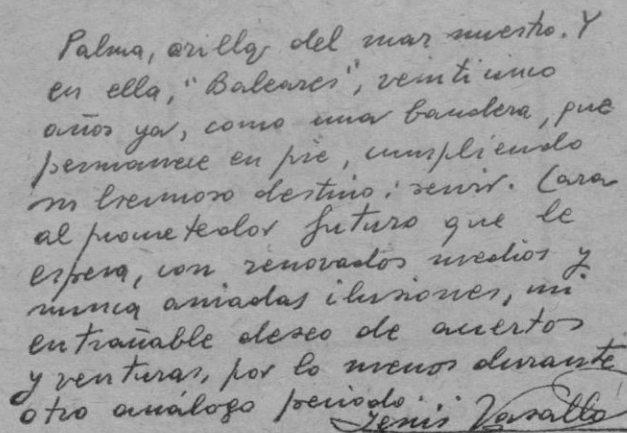 Palma, orilla del mar nuestro. Y
en ella, "Baleares", veinticinco
años ya, como una bandera, que
permanece en pie, cumpliendo
su hermoso destino: servir. Cara
al prometedor futuro que le
espera, con renovados medios y
nunca arriadas ilusiones, mi
entrañable deseo de aciertos
y venturas, por lo menos durante
otro análogo periodo.
Jesús Vasallo